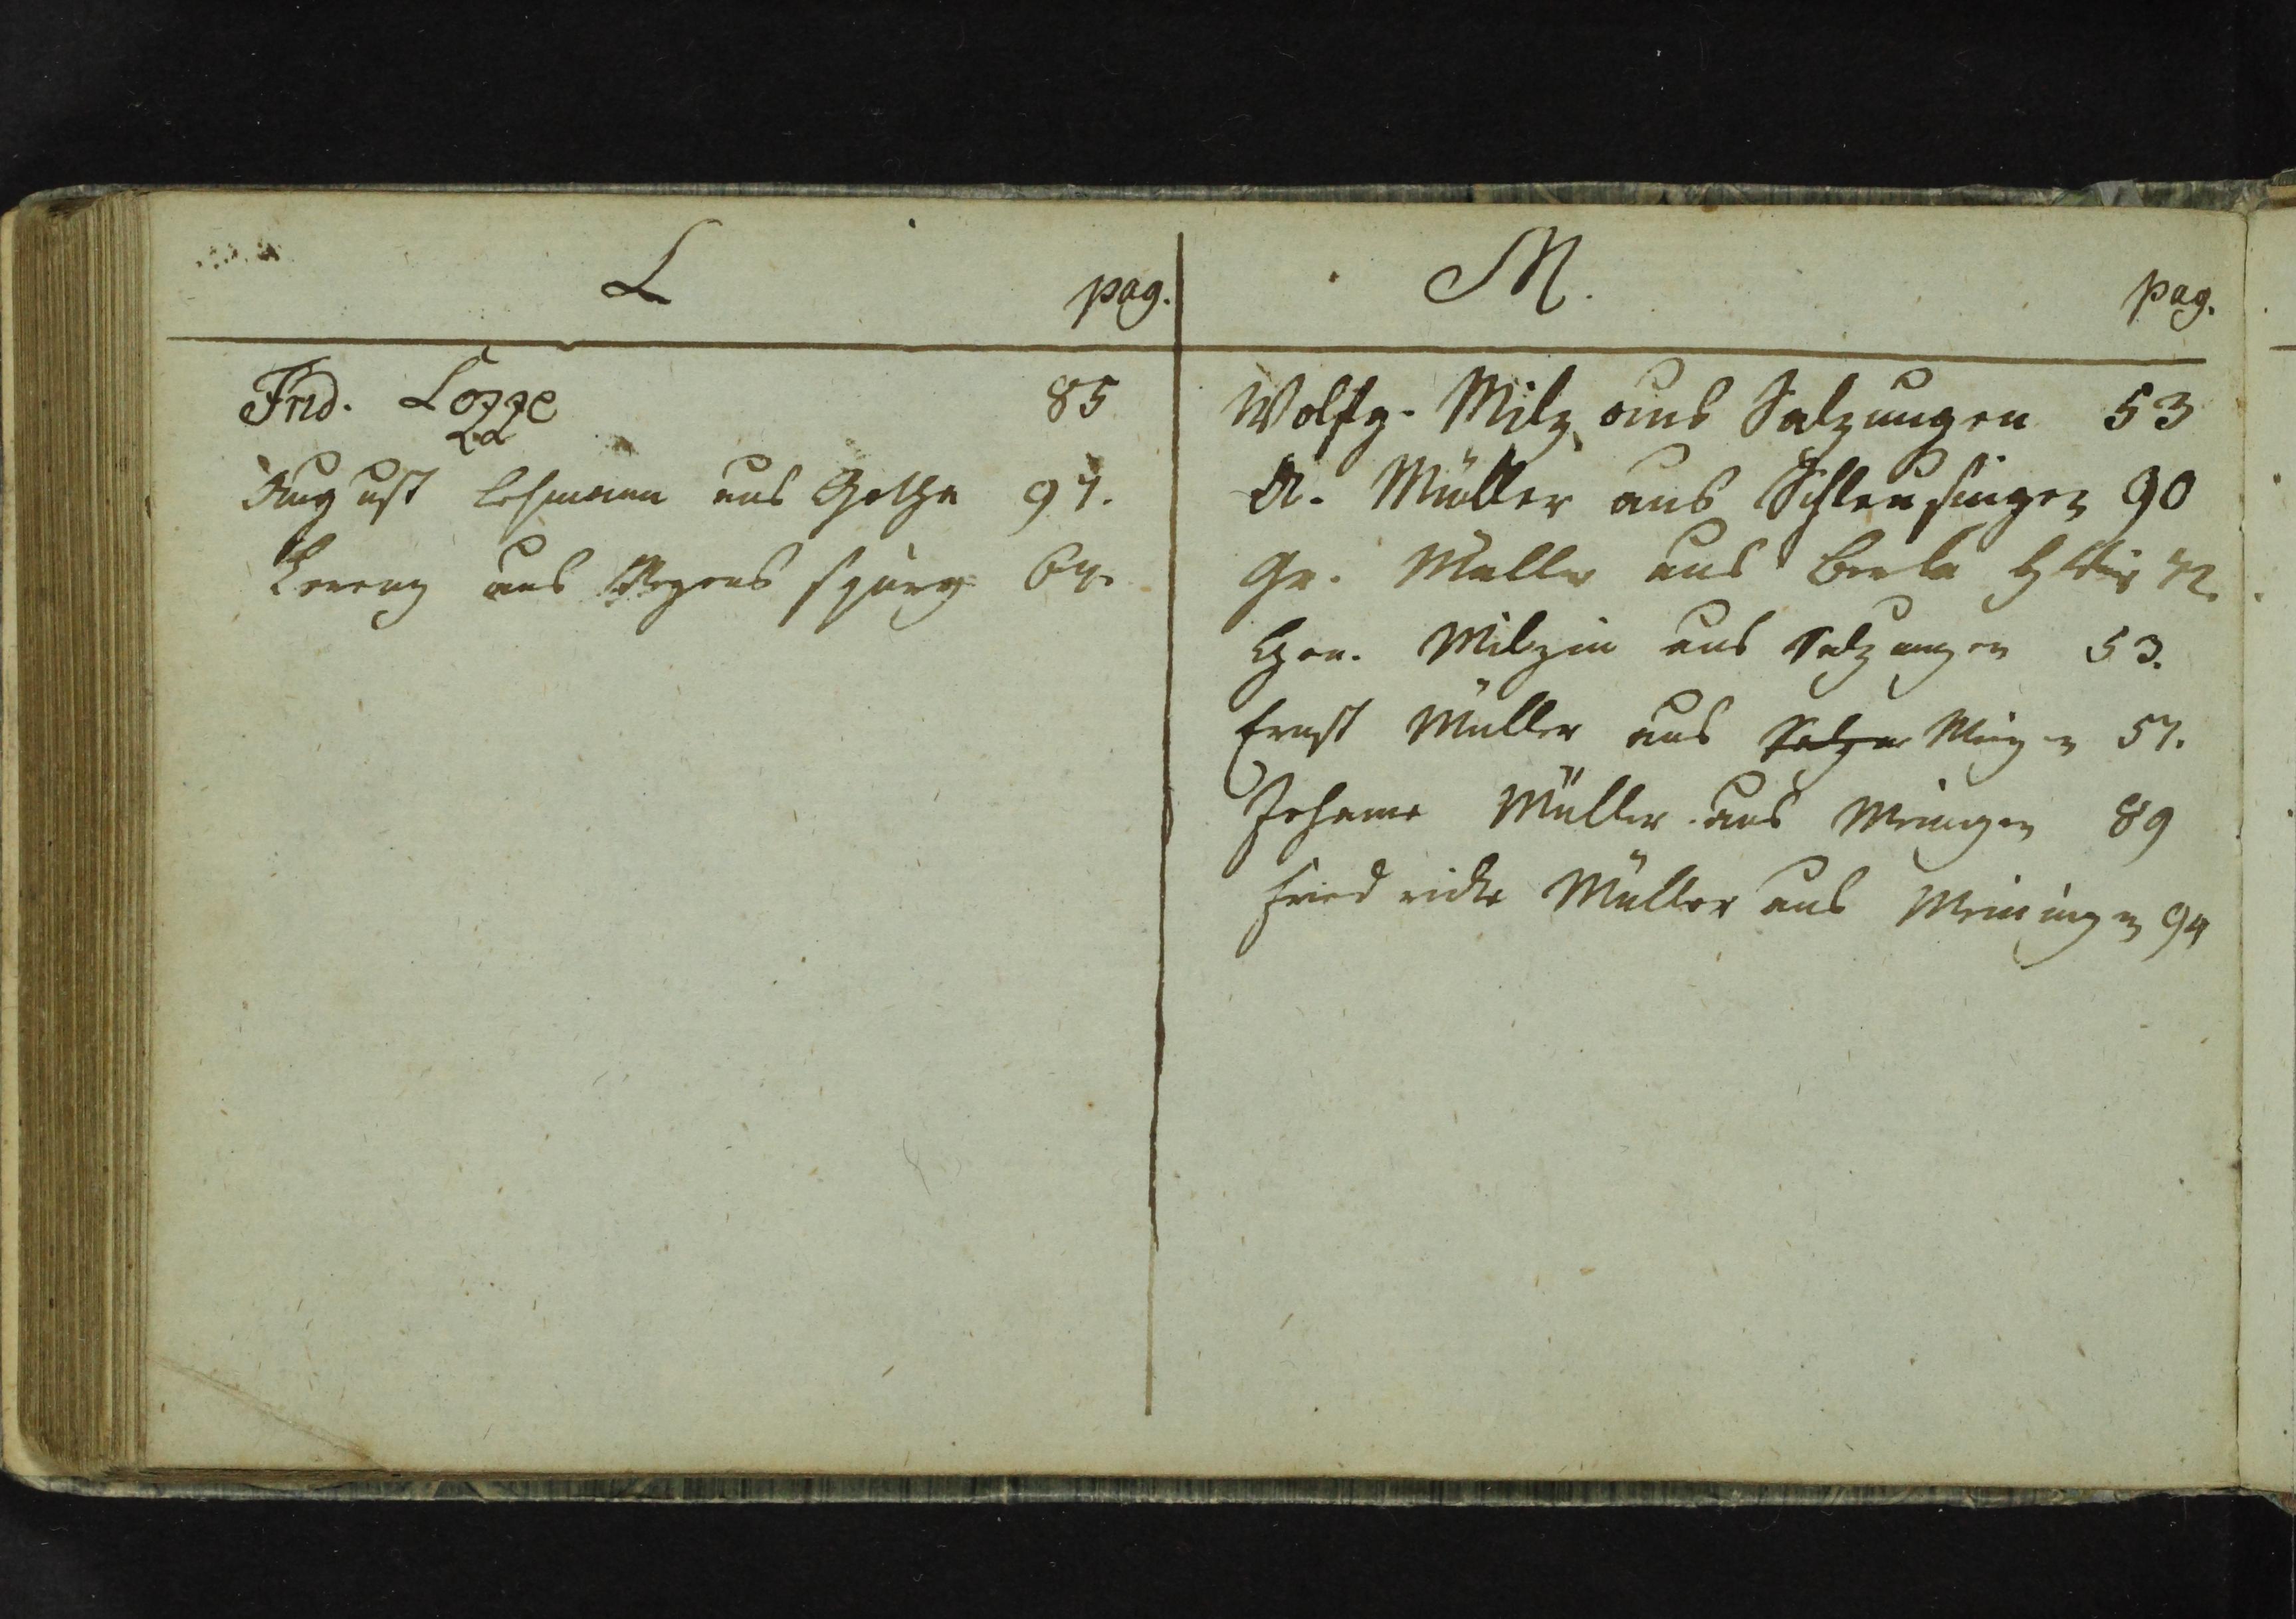 L
pag.
Frid. Lozze 85
August Lehmann aus Gotha 97.
Lorenz aus Regens spurg 64.
M.
pag.
Wolfg. Milz aus Salzungen 53
A. Müller aus Schleusingen 90
Gr. Muller aus Berka
Milzin aus Salzungen 53.
Ernst Müller aus Salzu 57.
Johanne Müller aus Meingen 89
Fried ricke Müller aus Meiningen 94